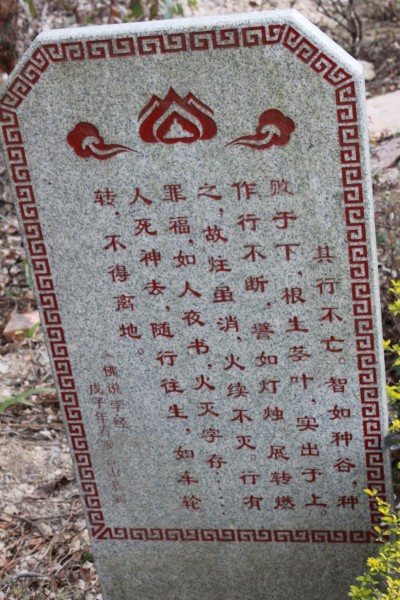 其行不亡。智如种谷,种
败于下,根生茎叶,实出于上
作行不断,譬如灯烛 展转燃
之,故炷虽消,火续不灭。行有
罪福,如人夜书,火灭字存……
人死神去,随行往生,如车轮
转,不得离地。
《佛说孛经
戊子年